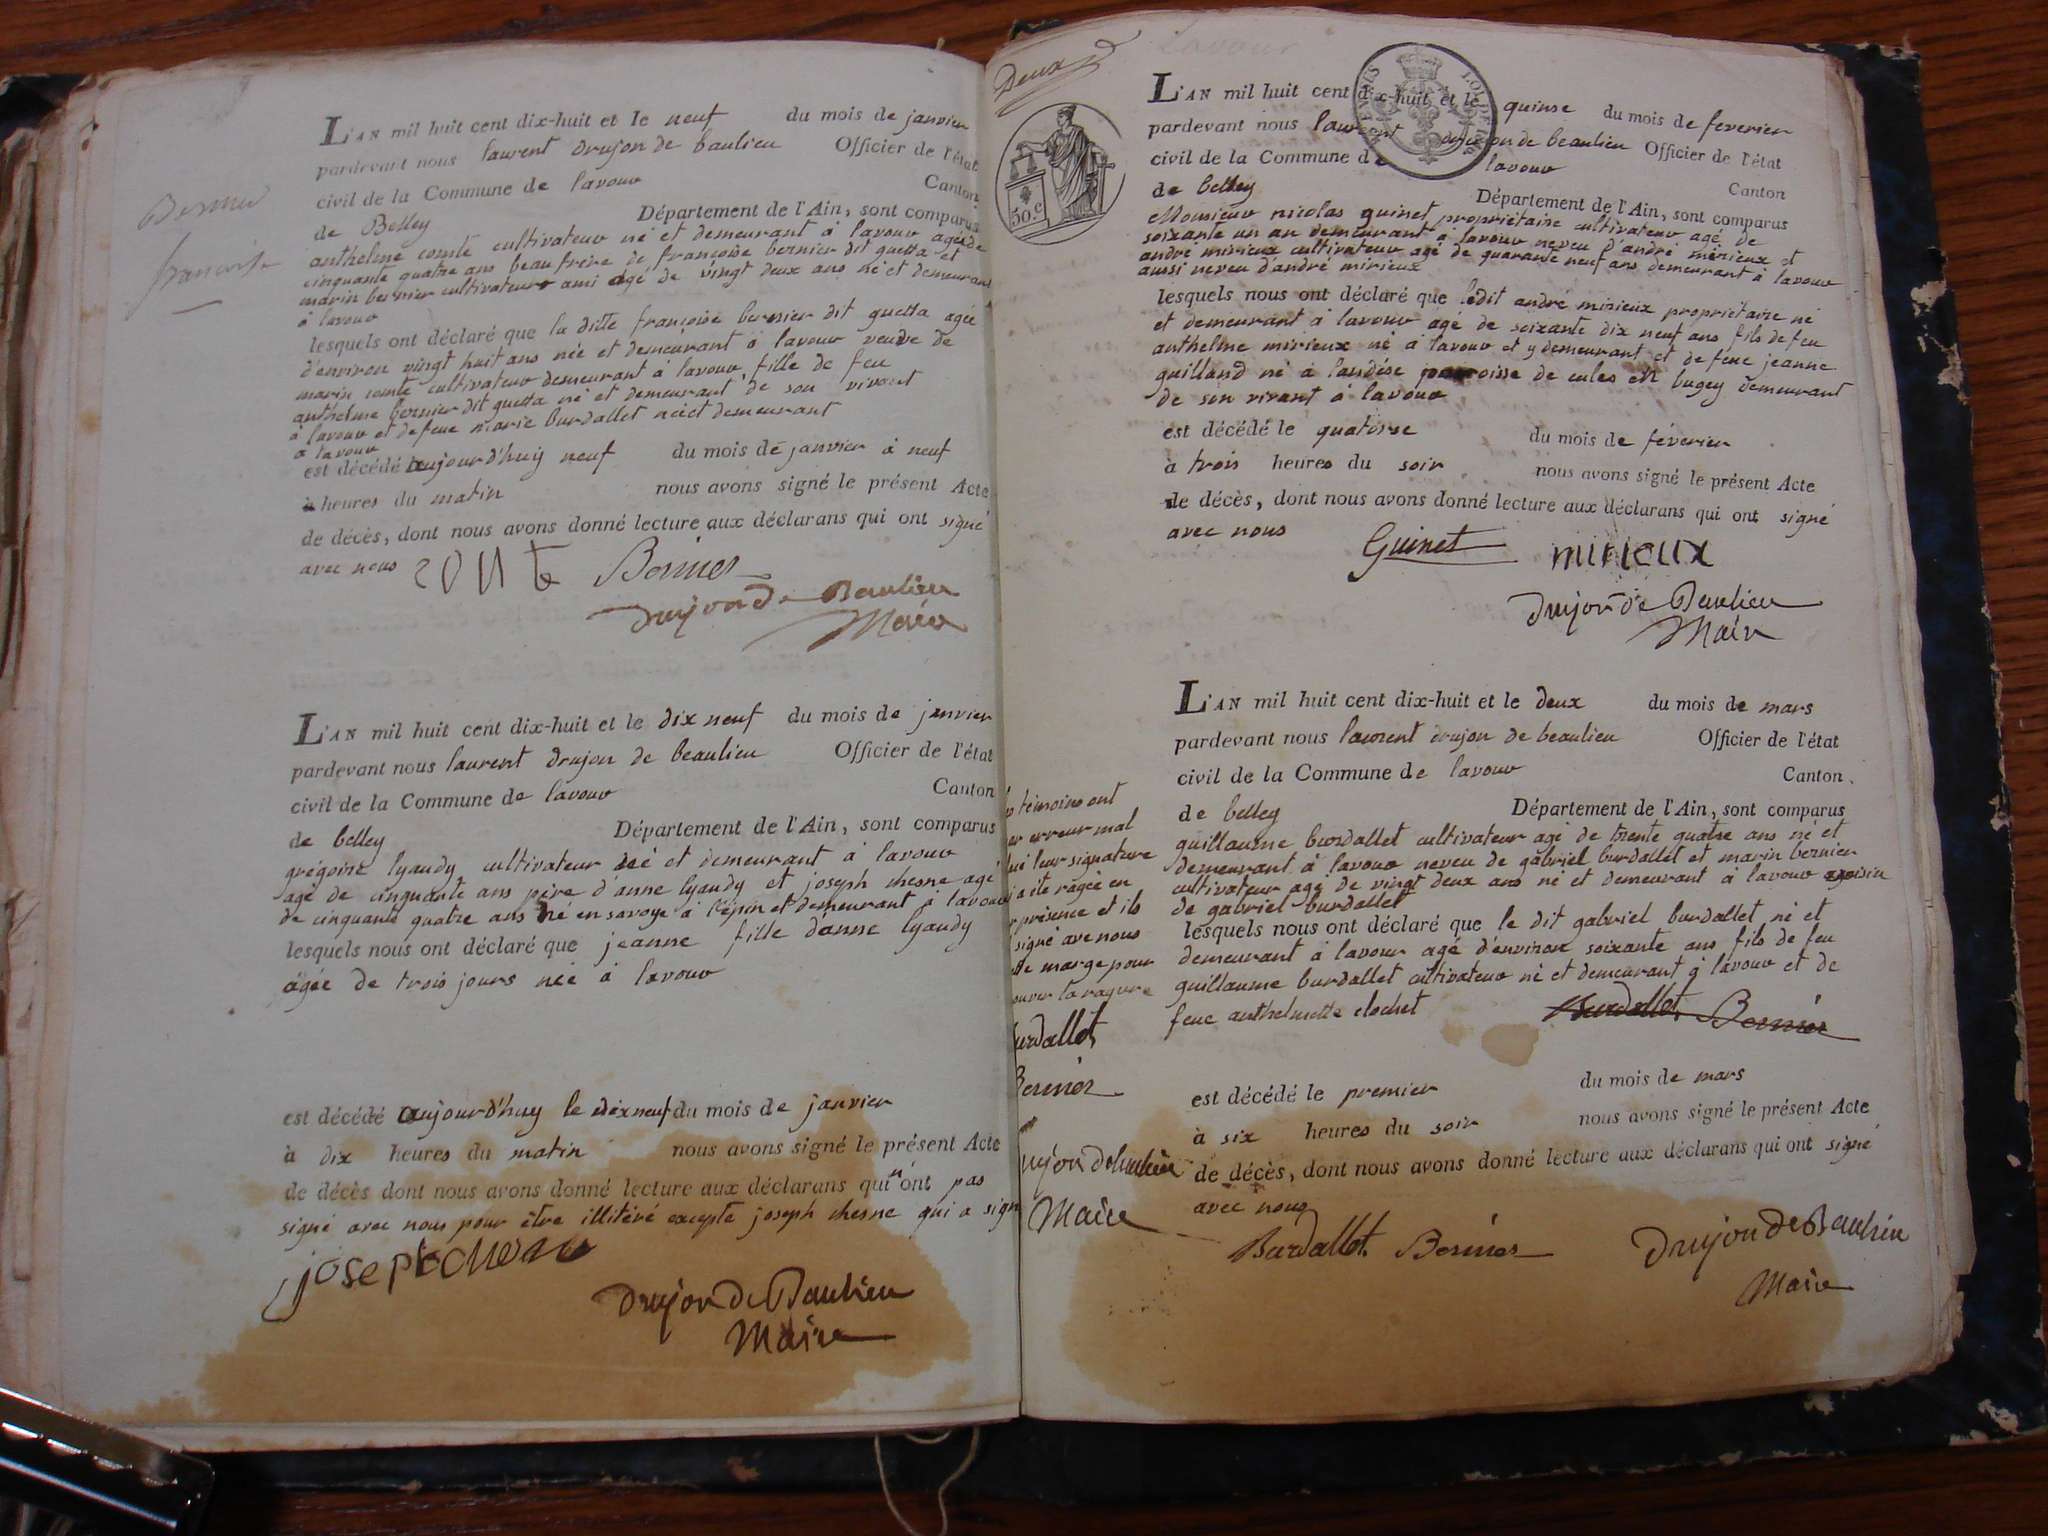 Bernier
françoise
L'AN mil huit cent dix-huit et le neuf du mois de janvier
pardevant nous laurent drujon de baulieu Officier de l'état
civil de la Commune de lavour Canton
de Belley Département de l'Ain, sont comparus
anthelme comte cultivateur né et demeurant à lavour agé de
cinquante quatre ans beaufrere de françoise bernier dit guetta et
marin bernier cultivateur ami agé de vingt deux ans né et demeurant
à lavour
lesquels ont déclaré que la ditte françoise bernier dit guetta agée
d'environ vingt huit ans née et demeurant à lavour veuve de
marin comte cultivateur demeurant à lavour, fille de feu
anthelme bernier dit guetta né et demeurant de son vivant
à lavour et de feue marie burdallet née et demeurant
à lavour
est décédé aujourd'huy neuf du mois de janvier à neuf
à heures du matin nous avons signé le présent Acte
de décès, dont nous avons donné lecture aux déclarans qui ont signé
avec nous comte Bernier
Drujon De Beaulieu
Maire
L'AN mil huit cent dix-huit et le dix neuf du mois de janvier
pardevant nous laurent drujon de beaulieu Officier de l'état
civil de la Commune de lavour Canton
de belley Département de l'Ain, sont comparus
grégoire lyaudy cultivateur né et demeurant à lavour
agé de cinquante ans père d'anne lyaudy et joseph chesne agé
de cinquante quatre ans né en savoye à l'épin et demeurant à lavour
lesquels nous ont déclaré que jeanne fille d'anne lyaudy
agée de trois jours née à lavour
est décédé aujourd'huy le dixneuf du mois de janvier
à dix heures du matin nous avons signé le présent Acte
de décès dont nous avons donné lecture aux déclarans qui n'ont pas
signé avec nous pour être illitéré excepte joseph chesne qui a signé
joseph chene
Drujon De Beaulieu
Maire
Deux
Lavour
50.c
L'AN mil huit cent dix-huit et le quinse du mois de feverier
pardevant nous laurent drujon de beaulieu Officier de l'état
civil de la Commune de lavour Canton
de belley Département de l'Ain, sont comparus
Monsieur nicolas guinet propriétaire cultivateur agé de
soixante un an demeurant à lavour neveu d'andré mirieux et
andré mirieux cultivateur agé de quarante neuf ans demeurant à lavour
aussi neveu d'andré mirieux
lesquels nous ont déclaré que ledit andré mirieux propriétaire né
et demeurant à lavour agé de soixante dix neuf ans fils de feu
anthelme mirieux né à lavour et y demeurant et de feue jeanne
guilland né à landése paroisse de culos en bugey demeurant
de son vivant à lavour
est décédé le quatorse du mois de féverier
à trois heures du soir nous avons signé le présent Acte
de décès, dont nous avons donné lecture aux déclarans qui ont signé
avec nous Guinet mirieux
Drujon De Beaulieu
Maire
L'AN mil huit cent dix-huit et le deux du mois de mars
pardevant nous laurent drujon de beaulieu Officier de l'état
civil de la Commune de lavour Canton
de belley Département de l'Ain, sont comparus
guillaume burdallet cultivateur agé de trente quatre ans né et
demeurant à lavour neveu de gabriel burdallet et marin bernier
cultivateur agé de vingt deux ans né et demeurant à lavour voisin
de gabriel burdallet
lesquels nous ont déclaré que le dit gabriel burdallet né et
demeurant à lavour agé d'environ soixante ans fils de feu
guillaume burdallet cultivateur né et demeurant à lavour et de
feue anthelmette clochet Burdallet Bernier
est décédé le premier du mois de mars
à six heures du soir nous avons signé le présent Acte
de décès, dont nous avons donné lecture aux déclarans qui ont signé
avec nous
Burdallet Bernier Drujon De Beaulieu
Maire
témoins ont
erreur mal
leur signature
a été rayée en
présence et ils
signé avec nous
marge pour
la rayure
urdallet
Bernier
rujon De beaulieu
Maire